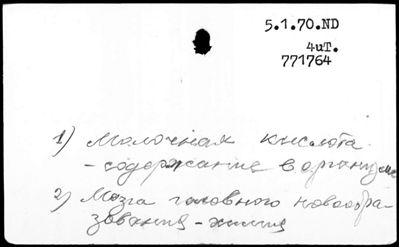 5.1.70.ND
4uT.
771764
1) Молочная кислота
- содержание в организме
2) Мозга головного новообра-
зования - химия